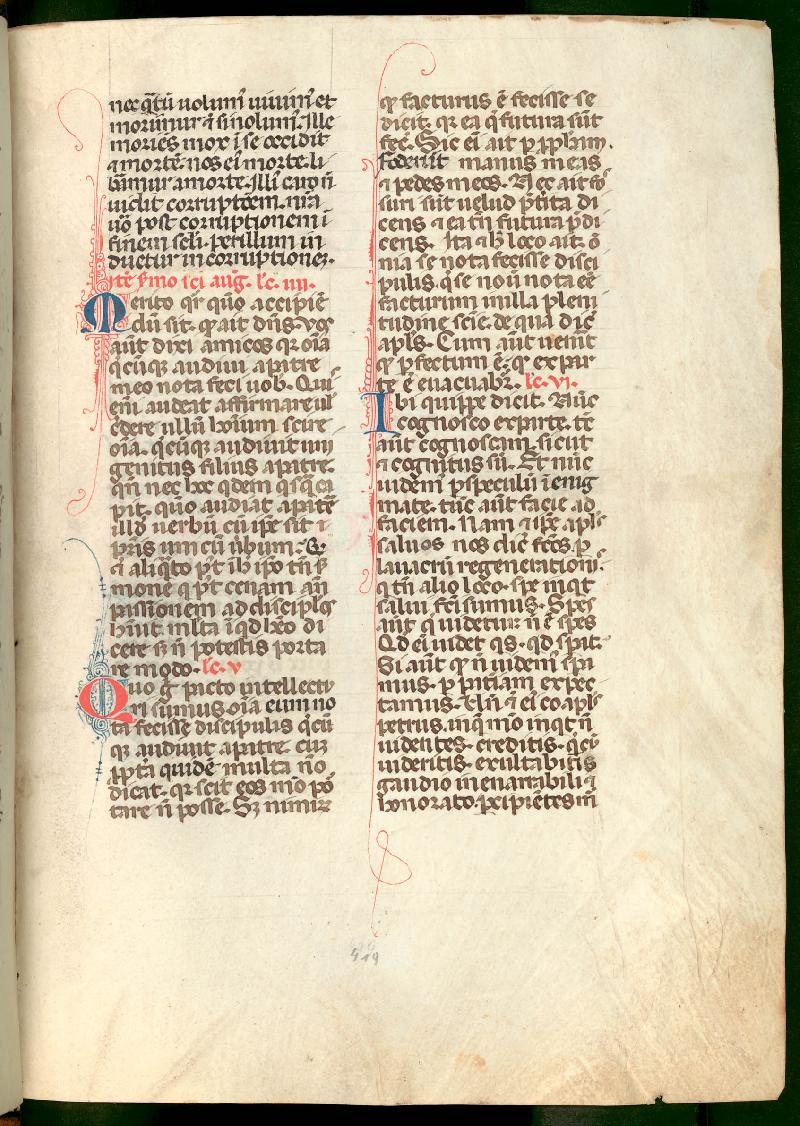 nec q̄tū uolum᷒ uiuim᷒ et
morimur ⁊ si nolum᷒. Ille
moriēs mox ī se occidit
⁊ mortē. nos ei᷒ morte li
bam̄ur a morte. Illi caro n̄
uidit corruptōem. nr̄a
ůo post corruptionem ī
finem sc̄li. per illum in
duetur incorruptionez.
Itē s̄mo sc̄i aug. lc̄. iiii.
Merito qr̄ quō accipiē
dū sit. qd̄ ait dn̄s. Vos
aūt dixi amicos qr oīa
q̄cūqꝫ audiui a patre
meo nota feci uob. Quis
eni᷒ audeat affirmare uł
c̄dere ullū hōium scire
oīa. q̄cūqꝫ audiuit uni
genitus filius a patre.
qn̄ nec hoc qdem qsq̄ ca
pit. quō audiat a patre
illd̄ uerbū cū ip̄e sit i
pris unicū ūbum. Q
⁊ aliq̄to p̄t ī h̊ ipo tn̄ s̄
mone q p̄t cenam an̄
passionem ad discipłos
hūit m̄lta īqd̄ hēo di
cere s̄ n̄ potestis porta
re modo. lc̄. v
Quo ḡ pacto intellectu
ri sumus oīa eum no
ta fecisse discipulis q̄cū
qꝫ audiuit a patre. cuꝫ
ppt̄a quidē multa nō
dicat. qr scit eos mō por
tare n̄ posse. Sꝫ nimirꝫ
qd̄ facturus ē fecisse se
dicit. qr ea q̄ futura sūt
fec̄. Sic ei᷒ ait p ꝓph̄am.
foderūt manus meas
⁊ pedes meos. Nec ait fos
suri sūt uelud p̄t̄ita di
cens ⁊ ea tn̄ futura p̄di
cens. Ita ⁊ h̊ loco ait. ō
nia se nota fecisse disci
pulis. q̄ se nouit nota eē
facturum in illa pleni
tudine scīe. de qua dic̄
apłs. Cum aūt uen̄it
qd̄ ꝑfectum ē. qd̄ ex par
te ē euacuabr̄. lc̄. vi.
Ibi quippe dicit. Nūc
cognosco ex parte. tc̄
aūt cognoscam sicut
⁊ cognitus sū. Et nūc
uidem᷒ p speculū ī enig
mate. tūc aūt facie ad
faciem. Nam ⁊ ip̄e apłs
saluos nos dic̄ fc̄os p
lauacrū regenerationis.
q tn̄ alio loco. spe inqt
salui fc̄i sumus. Spes
aūt q uidetur n̄ ē spes
Qd̄ ei᷒ uidet qs. qd̄ spat.
Si aūt qd̄ n̄ uidem᷒ spa
mus. p patiam expec
tamus. Vn̄ ⁊ ei᷒ coapłs
petrus. in q mō inqt n̄
uidentes. creditis. q̄ cū
uideritis. exultabitis
gaudio inenarrabili ⁊
honorato. ꝑcipiētes m̄
419